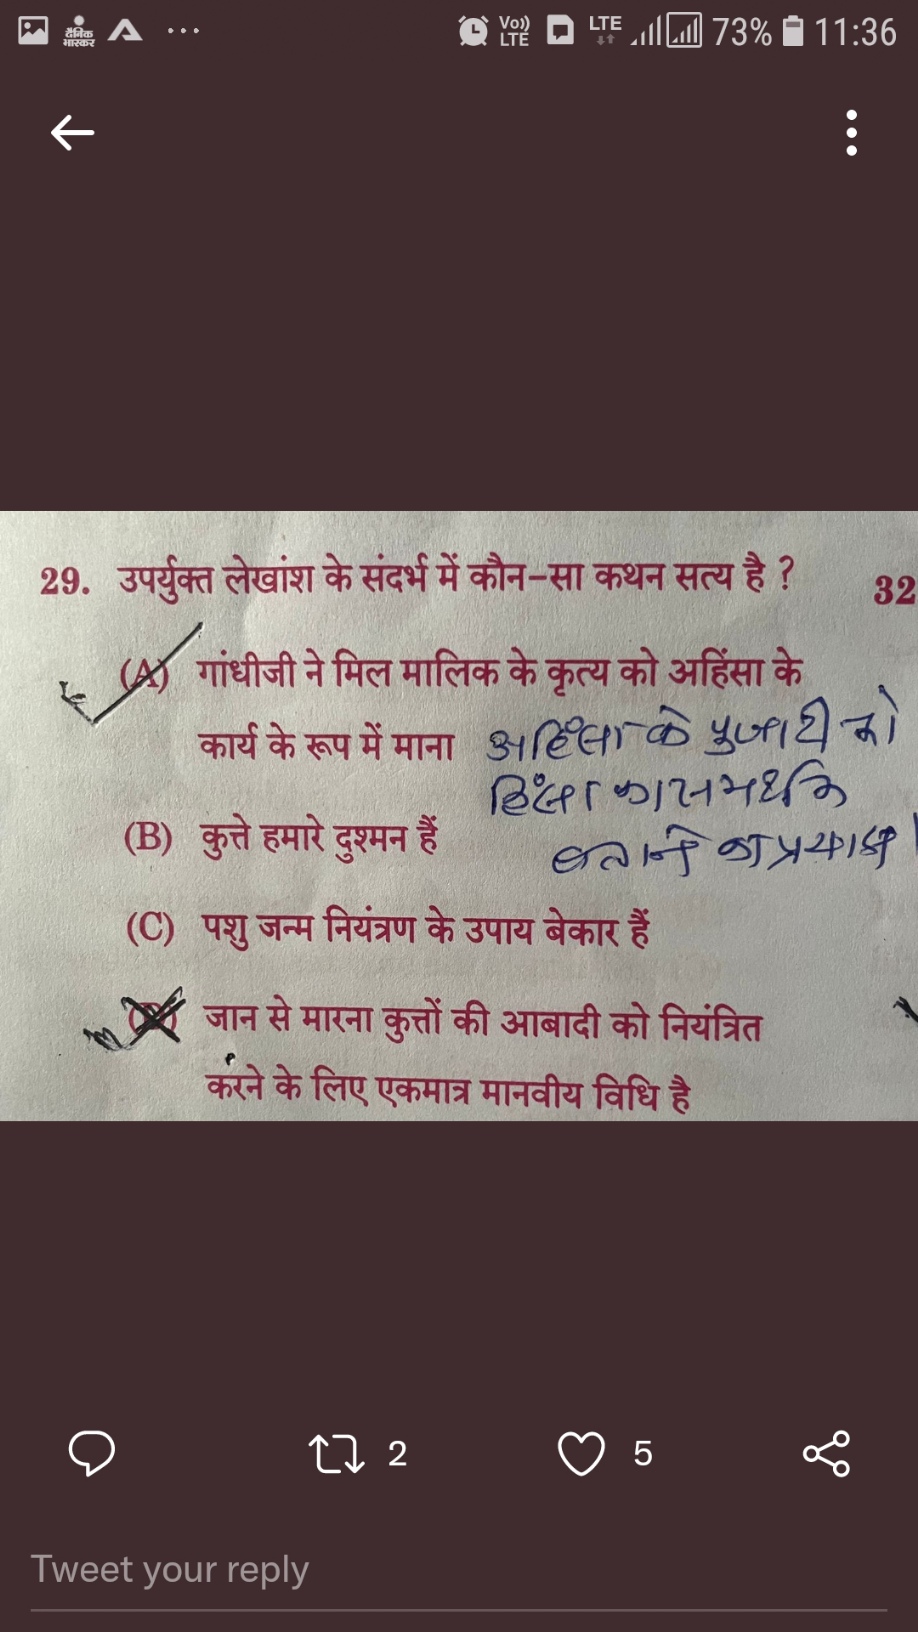 दैनिक भास्कर
Vo)) LTE LTE 73% 11:36
29. उपर्युक्त लेखांश के संदर्भ में कौन-सा कथन सत्य है ?
32
(A) गांधीजी ने मिल मालिक के कृत्य को अहिंसा के
कार्य के रूप में माना
अहिंसा के पुजारी को
हिंसा का समर्थक
बताने का प्रयास।
(B) कुत्ते हमारे दुश्मन हैं
(C) पशु जन्म नियंत्रण के उपाय बेकार हैं
(D) जान से मारना कुत्तों की आबादी को नियंत्रित
करने के लिए एकमात्र मानवीय विधि है
2
5
Tweet your reply